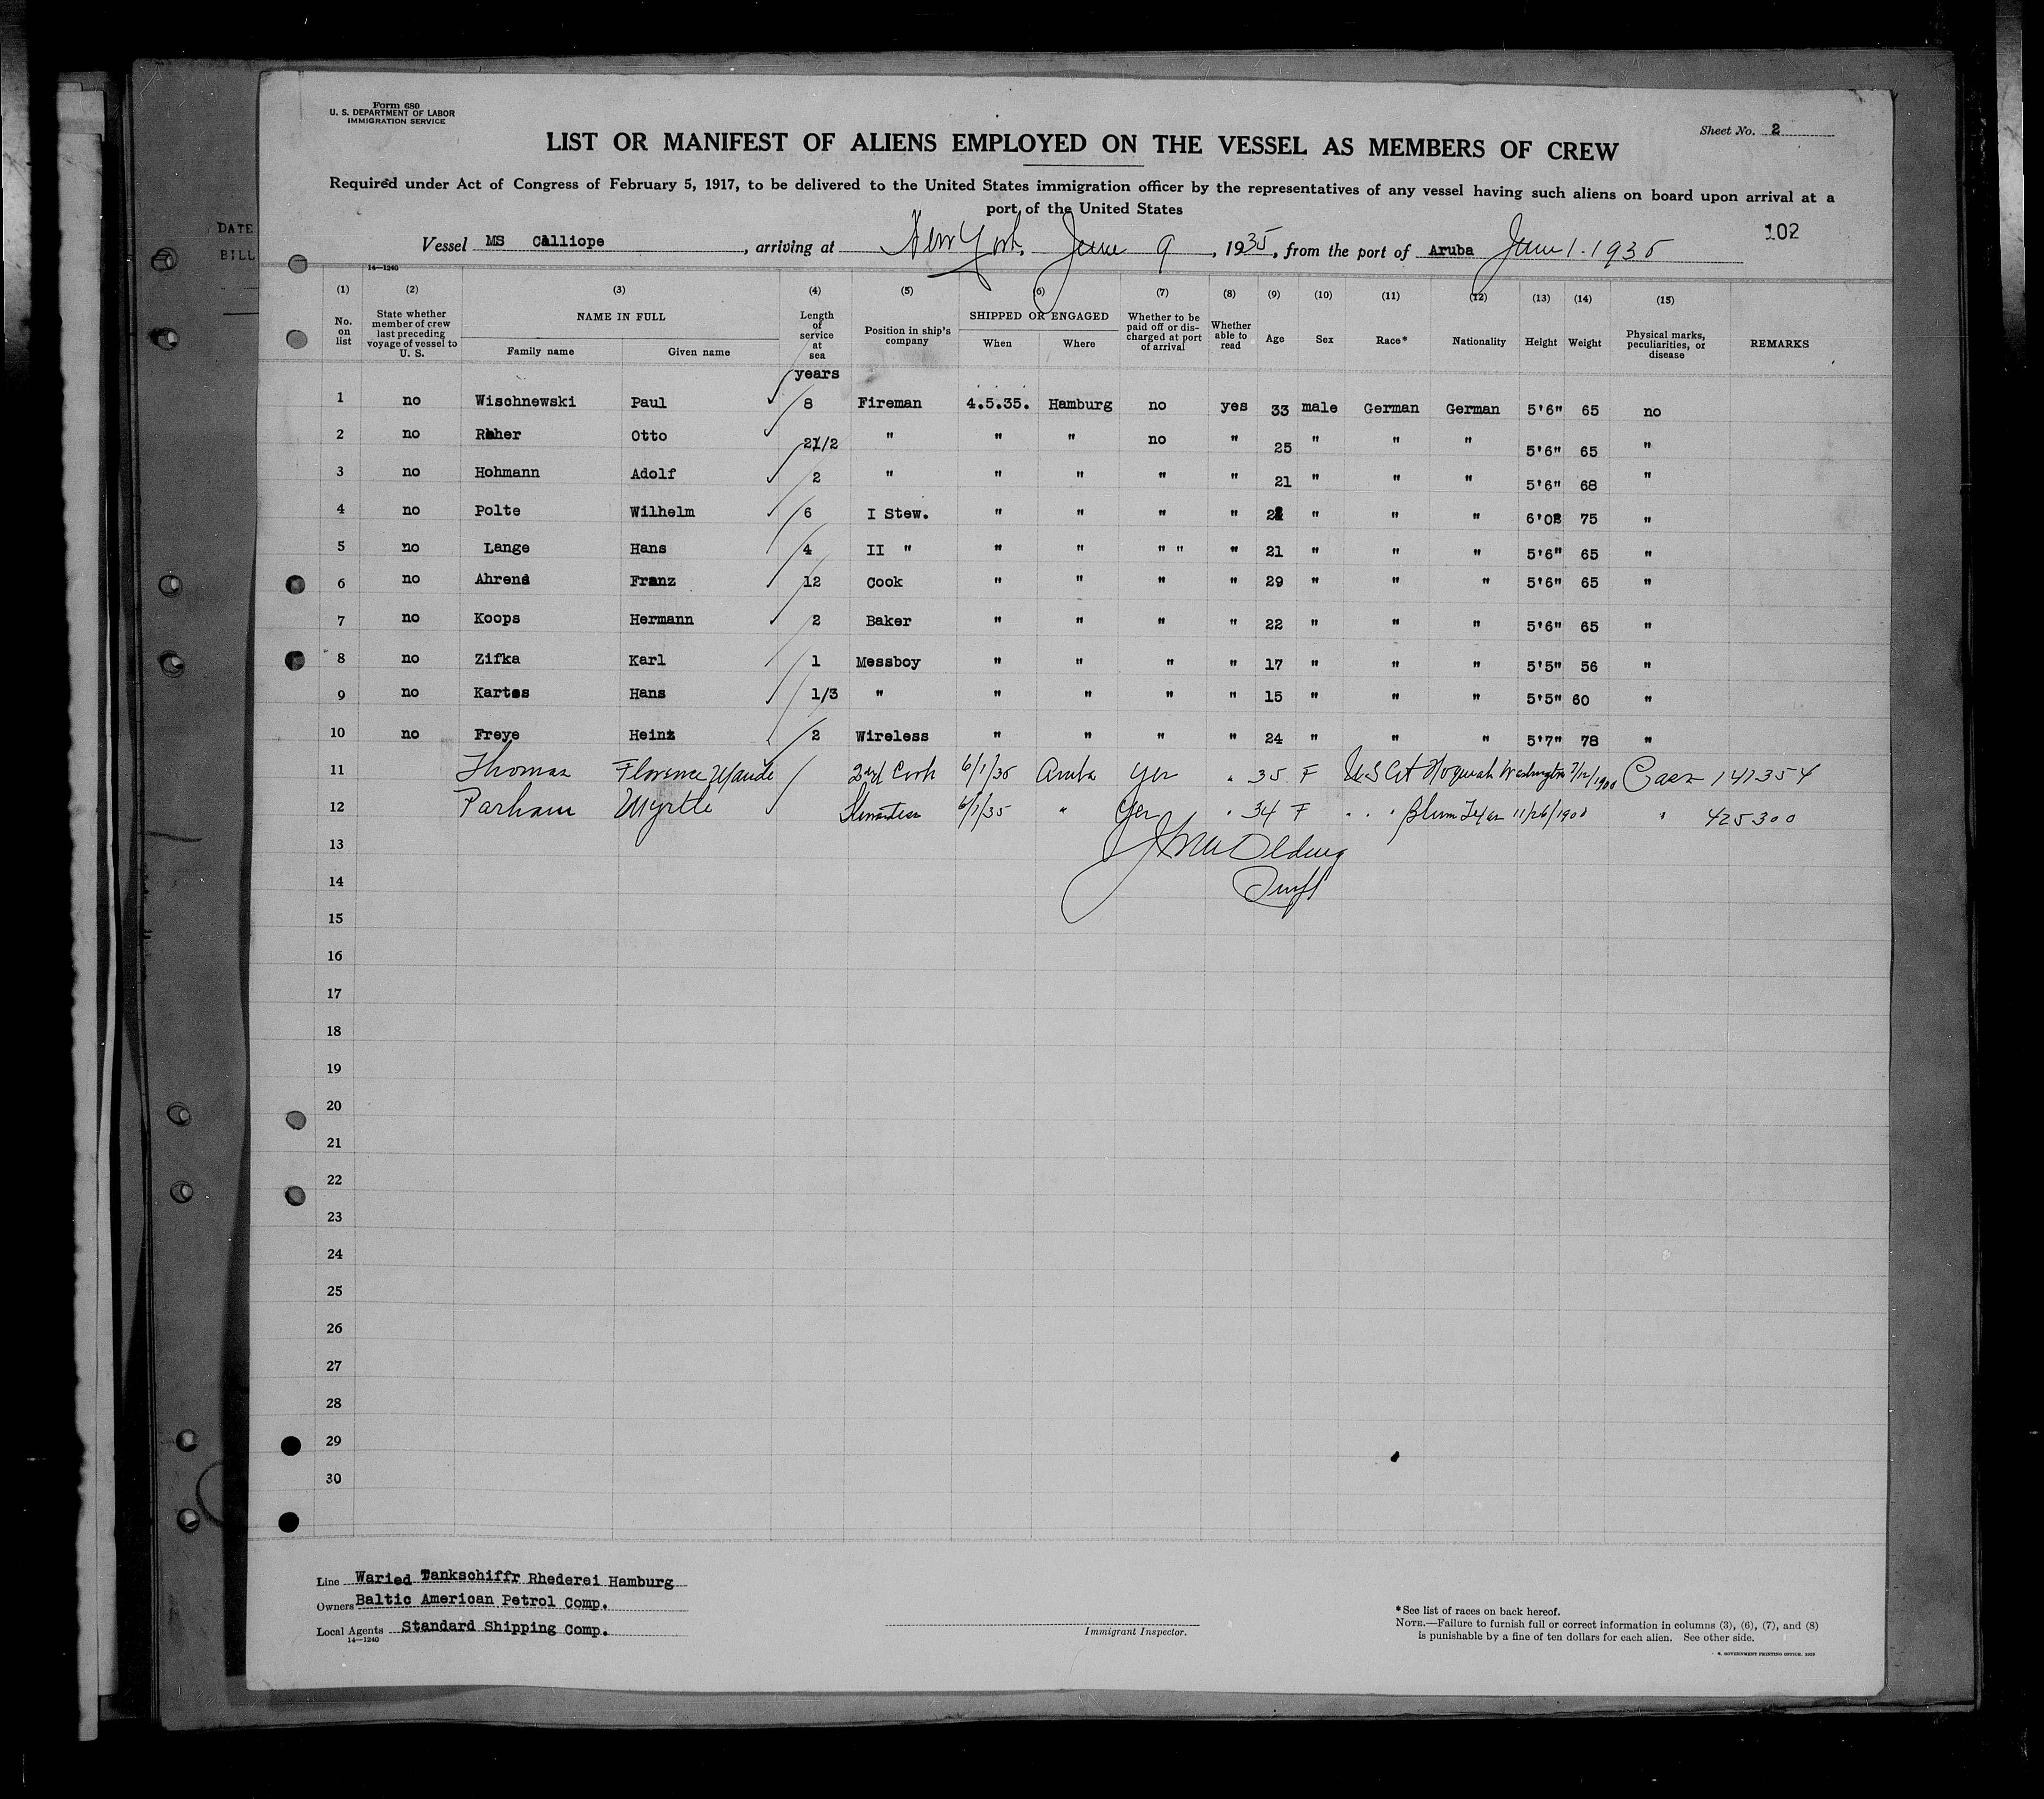 Form 680
U. S. DEPARTMENT OF LABOR
IMMIGRATION SERVICE
Sheet No. 2
LIST OR MANIFEST OF ALIENS EMPLOYED ON THE VESSEL AS MEMBERS OF CREW
Required under Act of Congress of February 5, 1917, to be delivered to the United States immigration officer by the representatives of any vessel having such aliens on board upon arrival at a
port of the United States
102
DATE
BILL
Vessel MS Calliope, arriving at New York, June 9, 1935, from the port of Aruba June 1. 1935
14—1240
(1) (2) (3) (4) (5) (6) (7) (8) (9) (10) (11) (12) (13) (14) (15)
No. on list State whether member of crew last preceding voyage of vessel to U. S. NAME IN FULL Family name Given name Length of service at sea Position in ship's company SHIPPED OR ENGAGED When Where Whether to be paid off or discharged at port of arrival Whether able to read Age Sex Race* Nationality Height Weight Physical marks, peculiarities, or disease REMARKS
years
1 no Wischnewski Paul 8 Fireman 4.5.35. Hamburg no yes 33 male German German 5'6" 65 no
2 no Otto 21/2 " " " no " 25 " " " 5'6" 65 "
3 no Hohmann Adolf 2 " " " " " 21 " " " 5'6" 68 "
4 no Polte Wilhelm 6 I Stew. " " " " " " " 75 "
5 no Lange Hans 4 II " " " " " " 21 " " " 5'6" 65 "
6 no Ahrens Franz 12 Cook " " " " 29 " " " 5'6" 65 "
7 no Koops Hermann 2 Baker " " " " 22 " " " 5'6" 65 "
8 no Zifka Karl 1 Messboy " " " " 17 " " " 5'5" 56 "
9 no Kartes Hans 1/3 " " " " " 15 " " " 5'5" 60 "
10 no Freye Heinz 2 Wireless " " " " 24 " " " 5'7" 78 "
11 Thomas Florence Maude 2nd Cook 6/1/35 Aruba Yes " 35 F US Cit Hoquiah Washington 7/12/1900 147354
12 Parham Myrtle Stewardess 6/1/35 " Yes " 34 F " " " Blum Texas 11/26/1900 " 425300
13
14
15
16
17
18
19
20
21
22
23
24
25
26
27
28
29
30
Line Waried Tankschiffr Rhederei Hamburg
Owners Baltic American Petrol Comp.
Local Agents Standard Shipping Comp.
14—1240
Immigrant Inspector.
*See list of races on back hereof.
NOTE.—Failure to furnish full or correct information in columns (3), (6), (7), and (8)
is punishable by a fine of ten dollars for each alien. See other side.
GOVERNMENT PRINTING OFFICE